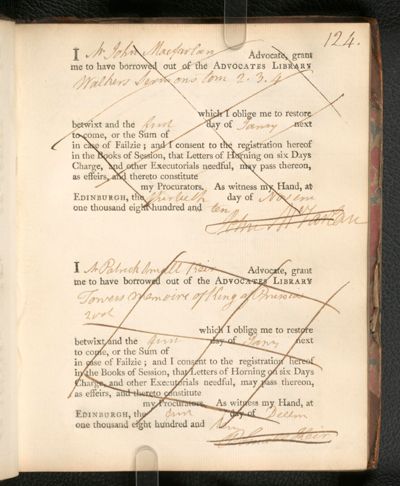 124.
I Mr John Macfarlan Advocate, grant
me to have borrowed out of the ADVOCATES LIBRARY
Walkers Sermons tom 2. 3. 4
which I oblige me to restore
betwixt and the first day of Janry next
to come, or the Sum of
in case of Failzie; and I consent to the registration hereof
in the Books of Session, that Letters of Horning on six Days
Charge, and other Executorials needful, may pass thereon,
as effeirs, and thereto constitute
my Procurators. As witness my Hand, at
EDINBURGH, the thirtieth day of Novem
one thousand eight hundred and ten
John McFarlan
I Mr Patrick Small Keir Advocate, grant
me to have borrowed out of the ADVOCATES LIBRARY
Towers Memoirs of King of Prussia
2 vol
which I oblige me to restore
betwixt and the first day of Janry next
to come, or the Sum of
in case of Failzie; and I consent to the registration hereof
in the Books of Session, that Letters of Horning on six Days
Charge, and other Executorials needful, may pass thereon,
as effeirs, and thereto constitute
my Procurators. As witness my Hand, at
EDINBURGH, the first day of Decem
one thousand eight hundred and ten
Keir